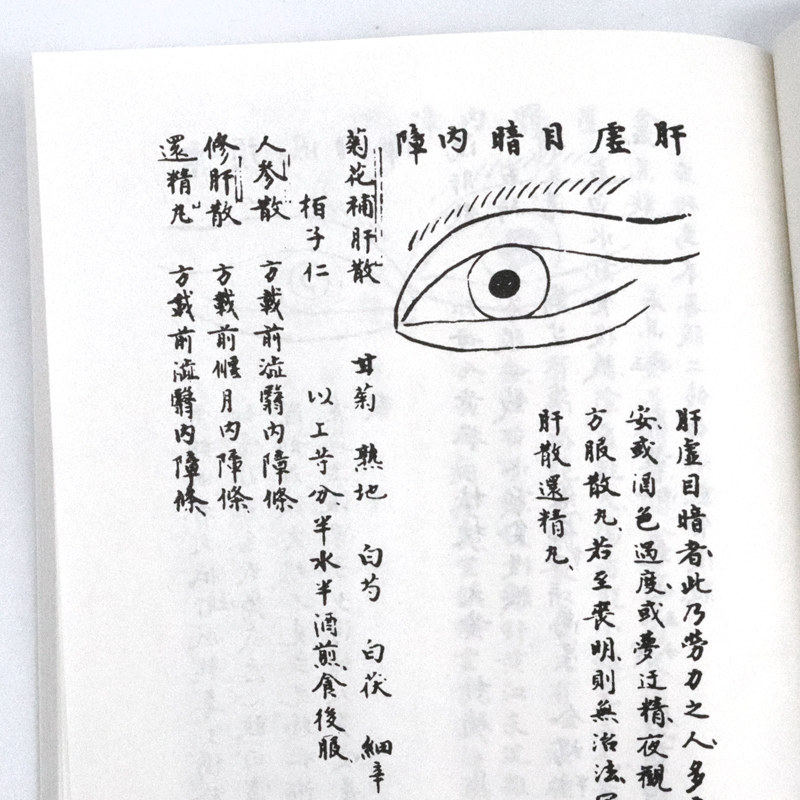 肝虛目暗內障
肝虛目暗者此乃勞力之人多
安或酒色過度或夢迂精夜觀
方服散丸若至丧明則無治法
肝散還精丸
菊花補肝散
甘菊 熟地 白芍 白茯 細辛
栢子仁 以上等分半水半酒煎食後服
人参散 方載前澁翳內障條
修肝散 方載前偃月內障條
還精丸 方載前澁翳內障條